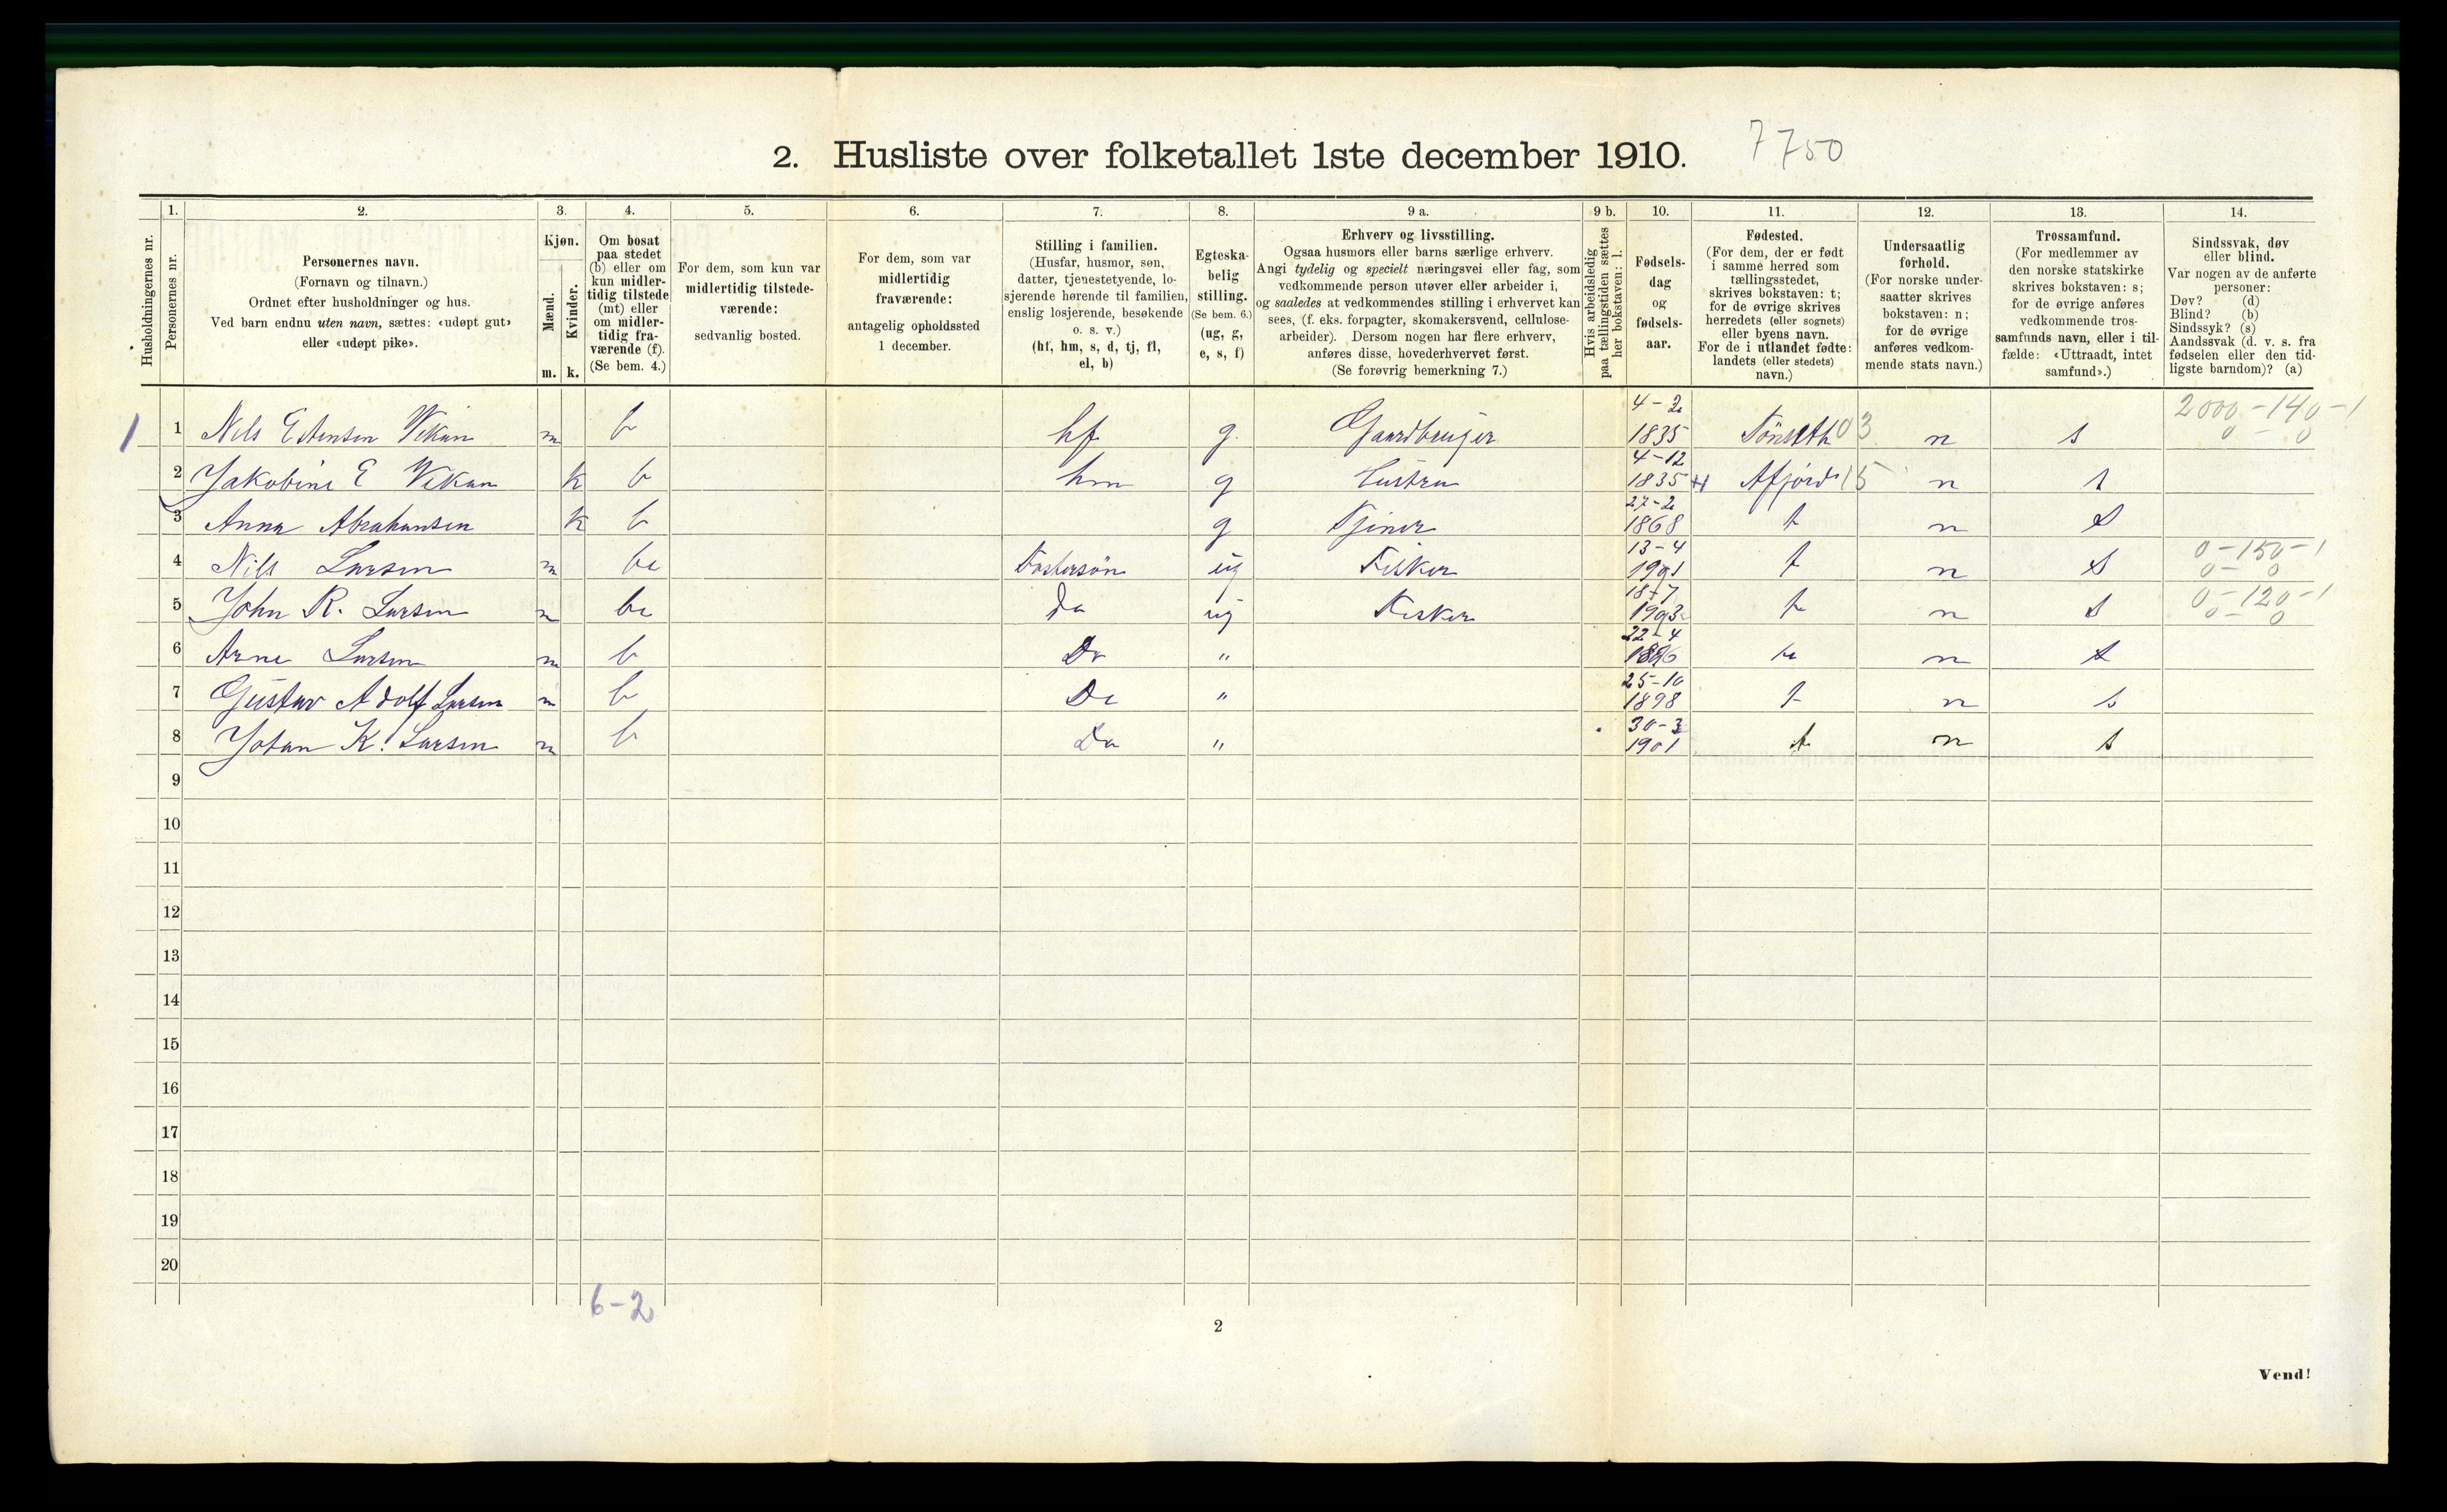 2. Husliste over folketallet 1ste december 1910. 7750
1. 2. 3. 4. 5. 6. 7. 8. 9 a. 9 b. 10. 11. 12. 13. 14.
Husholdningernes nr.
Personernes nr.
Personernes navn.
(Fornavn og tilnavn.)
Ordnet efter husholdninger og hus.
Ved barn endnu uten navn, sættes: «udøpt gut»
eller «udøpt pike».
Kjøn.
Mænd.
Kvinder.
m. k.
Om bosat
paa stedet
(b) eller om
kun midler-
tidig tilstede
(mt) eller
om midler-
tidig fra-
værende (f).
(Se bem. 4.)
For dem, som kun var
midlertidig tilstede-
værende:
sedvanlig bosted.
For dem, som var
midlertidig
fraværende:
antagelig opholdssted
1 december.
Stilling i familien.
(Husfar, husmor, søn,
datter, tjenestetyende, lo-
sjerende hørende til familien,
enslig losjerende, besøkende
o. s. v.)
(hf, hm, s, d, tj, fl,
el, b)
Egteska-
belig
stilling.
(Se bem. 6.)
(ug, g,
e, s, f)
Erhverv og livsstilling.
Ogsaa husmors eller barns særlige erhverv.
Angi tydelig og specielt næringsvei eller fag, som
vedkommende person utøver eller arbeider i,
og saaledes at vedkommendes stilling i erhvervet kan
sees, (f. eks. forpagter, skomakersvend, cellulose-
arbeider). Dersom nogen har flere erhverv,
anføres disse, hovederhvervet først.
(Se forøvrig bemerkning 7.)
Hvis arbeidsledig
paa tællingstiden sættes
her bokstaven: l.
Fødsels-
dag
og
fødsels-
aar.
Fødested.
(For dem, der er født
i samme herred som
tællingsstedet,
skrives bokstaven: t;
for de øvrige skrives
herredets (eller sognets)
eller byens navn.
For de i utlandet fødte:
landets (eller stedets)
navn.)
Undersaatlig
forhold.
(For norske under-
saatter skrives
bokstaven: n;
for de øvrige
anføres vedkom-
mende stats navn.)
Trossamfund.
(For medlemmer av
den norske statskirke
skrives bokstaven: s;
for de øvrige anføres
vedkommende tros-
samfunds navn, eller i til-
fælde: «Uttraadt, intet
samfund».)
Sindssvak, døv
eller blind.
Var nogen av de anførte
personer:
Døv? (d)
Blind? (b)
Sindssyk? (s)
Aandssvak (d. v. s. fra
fødselen eller den tid-
ligste barndom)? (a)
4-2 2000-140-1
1 1 Nils Estensen Vikan m b hf g. Gaardbruger 1835 03 n s 0-0
4-12
2 Jakobine E Vikan k b hm g Hustru 1835 Afjord 15 n s
27-2
3 Anna Abrahamsen k b g Tjener 1868 t n s
13-4 0-150-1
4 Nils Larsen m b Fostersön ug Fisker 1991 t n s 0-0
18-7 0-120-1
5 John R. Larsen m b Do ug Fisker 1993 t n s 0-0
22-4
6 Arne Larsen m b Do " 1896 t n s
25-10
7 Gustav Adolf Larsen m b Do " 1898 t n s
30-3
8 Johan K. Larsen m b Do " 1901 t n s
9
10
11
12
13
14
15
16
17
18
19
20
6-2
2
Vend!